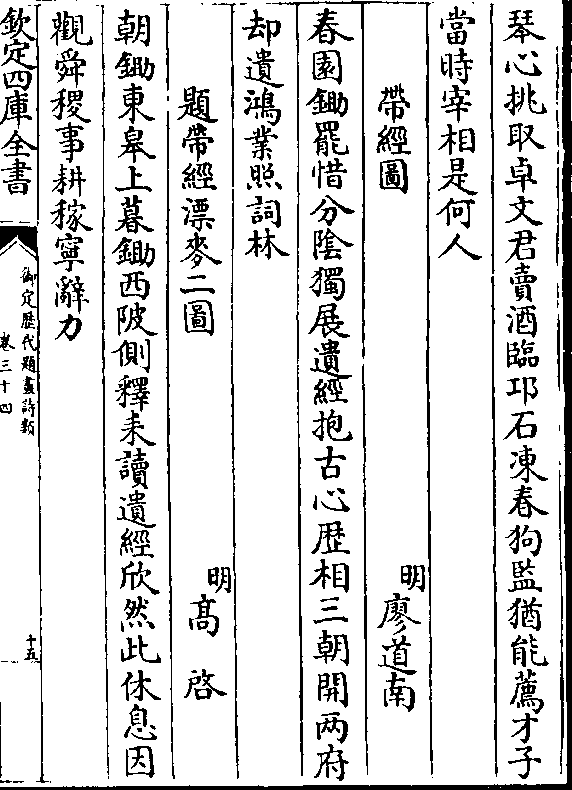 琴心挑取卓文君賣酒臨邛石凍春狗監猶能薦才子
當時宰相是何人
帶經圖
明廖道南
春園鋤罷惜分陰獨展遺經抱古心歴相三朝開两府
却遺鴻業照詞林
題帶經漂麥二圖
明髙啓
朝鋤東皋上暮鋤西陂側釋耒讀遺經欣然此休息因
觀舜稷事耕稼寧辭力
欽定四庫全書
御定歴代題畫詩類
卷三十四
十五